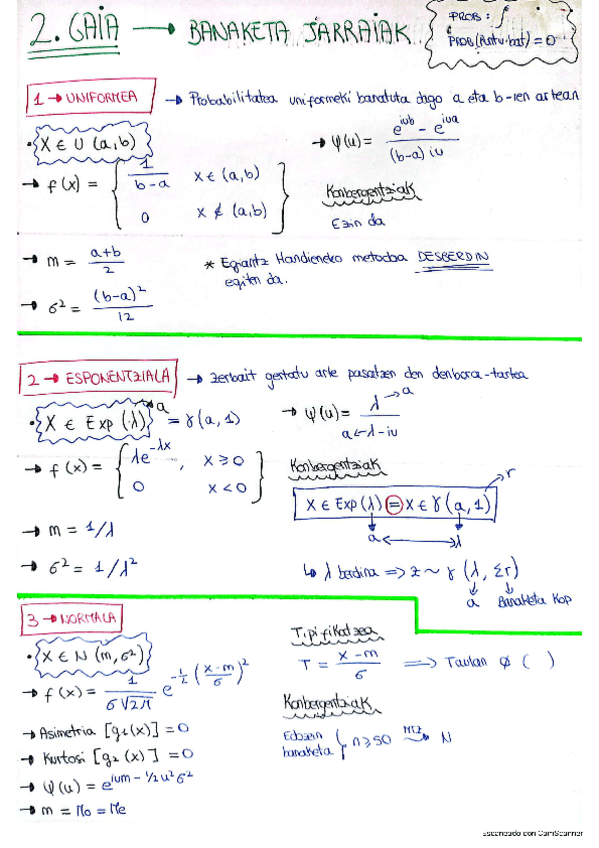 2. GAIA → BANAKETA JARRAIAK
PROB: ∫
PROB(Puntu bat) = 0
1 → UNIFORMEA → Probabilitatea uniformeki banatuta dago a eta b-ren artean
• X ∈ U (a,b)
→ f(x) = { 1/(b-a) x ∈ (a,b)
0 x ∉ (a,b) }
→ m = (a+b)/2
→ σ² = (b-a)²/12
→ Ψ(u) = (e^{iub} - e^{iua})/((b-a) iu)
Konbergentziak
Ezin da
* Egiantz Handieneko metodoa DESBERDIN
egiten da.
2 → ESPONENTZIALA → Zerbait gertatu arte pasatzen den denbora-tartea
• X ∈ Exp (λ) → a = γ(a,1)
→ f(x) = { λe^{-λx}, x ≥ 0
0 x < 0 }
→ m = 1/λ
→ σ² = 1/λ²
→ Ψ(u) = λ → a / a ← λ - iu
Konbergentziak
X ∈ Exp(λ) = X ∈ γ(a,1) → r
a ↔ λ
↳ λ berdina ⇒ z ~ γ (λ, Σr)
a Banaketa Kop
3 → NORMALA
• X ∈ N (m, σ²)
→ f(x) = 1/(σ√2π) e^{-1/2 ((x-m)/σ)²}
→ Asimetria [g₁(x)] = 0
→ Kurtosi [g₂(x)] = 0
→ Ψ(u) = e^{ium - 1/2 u² σ²}
→ m = Mo = Me
Tipifikatzea
T = (x-m)/σ ⇒ Taulan Ø ( )
Konbergentziak
Edozein
banaketa { n ≥ 50 → N
Escaneado con CamScanner